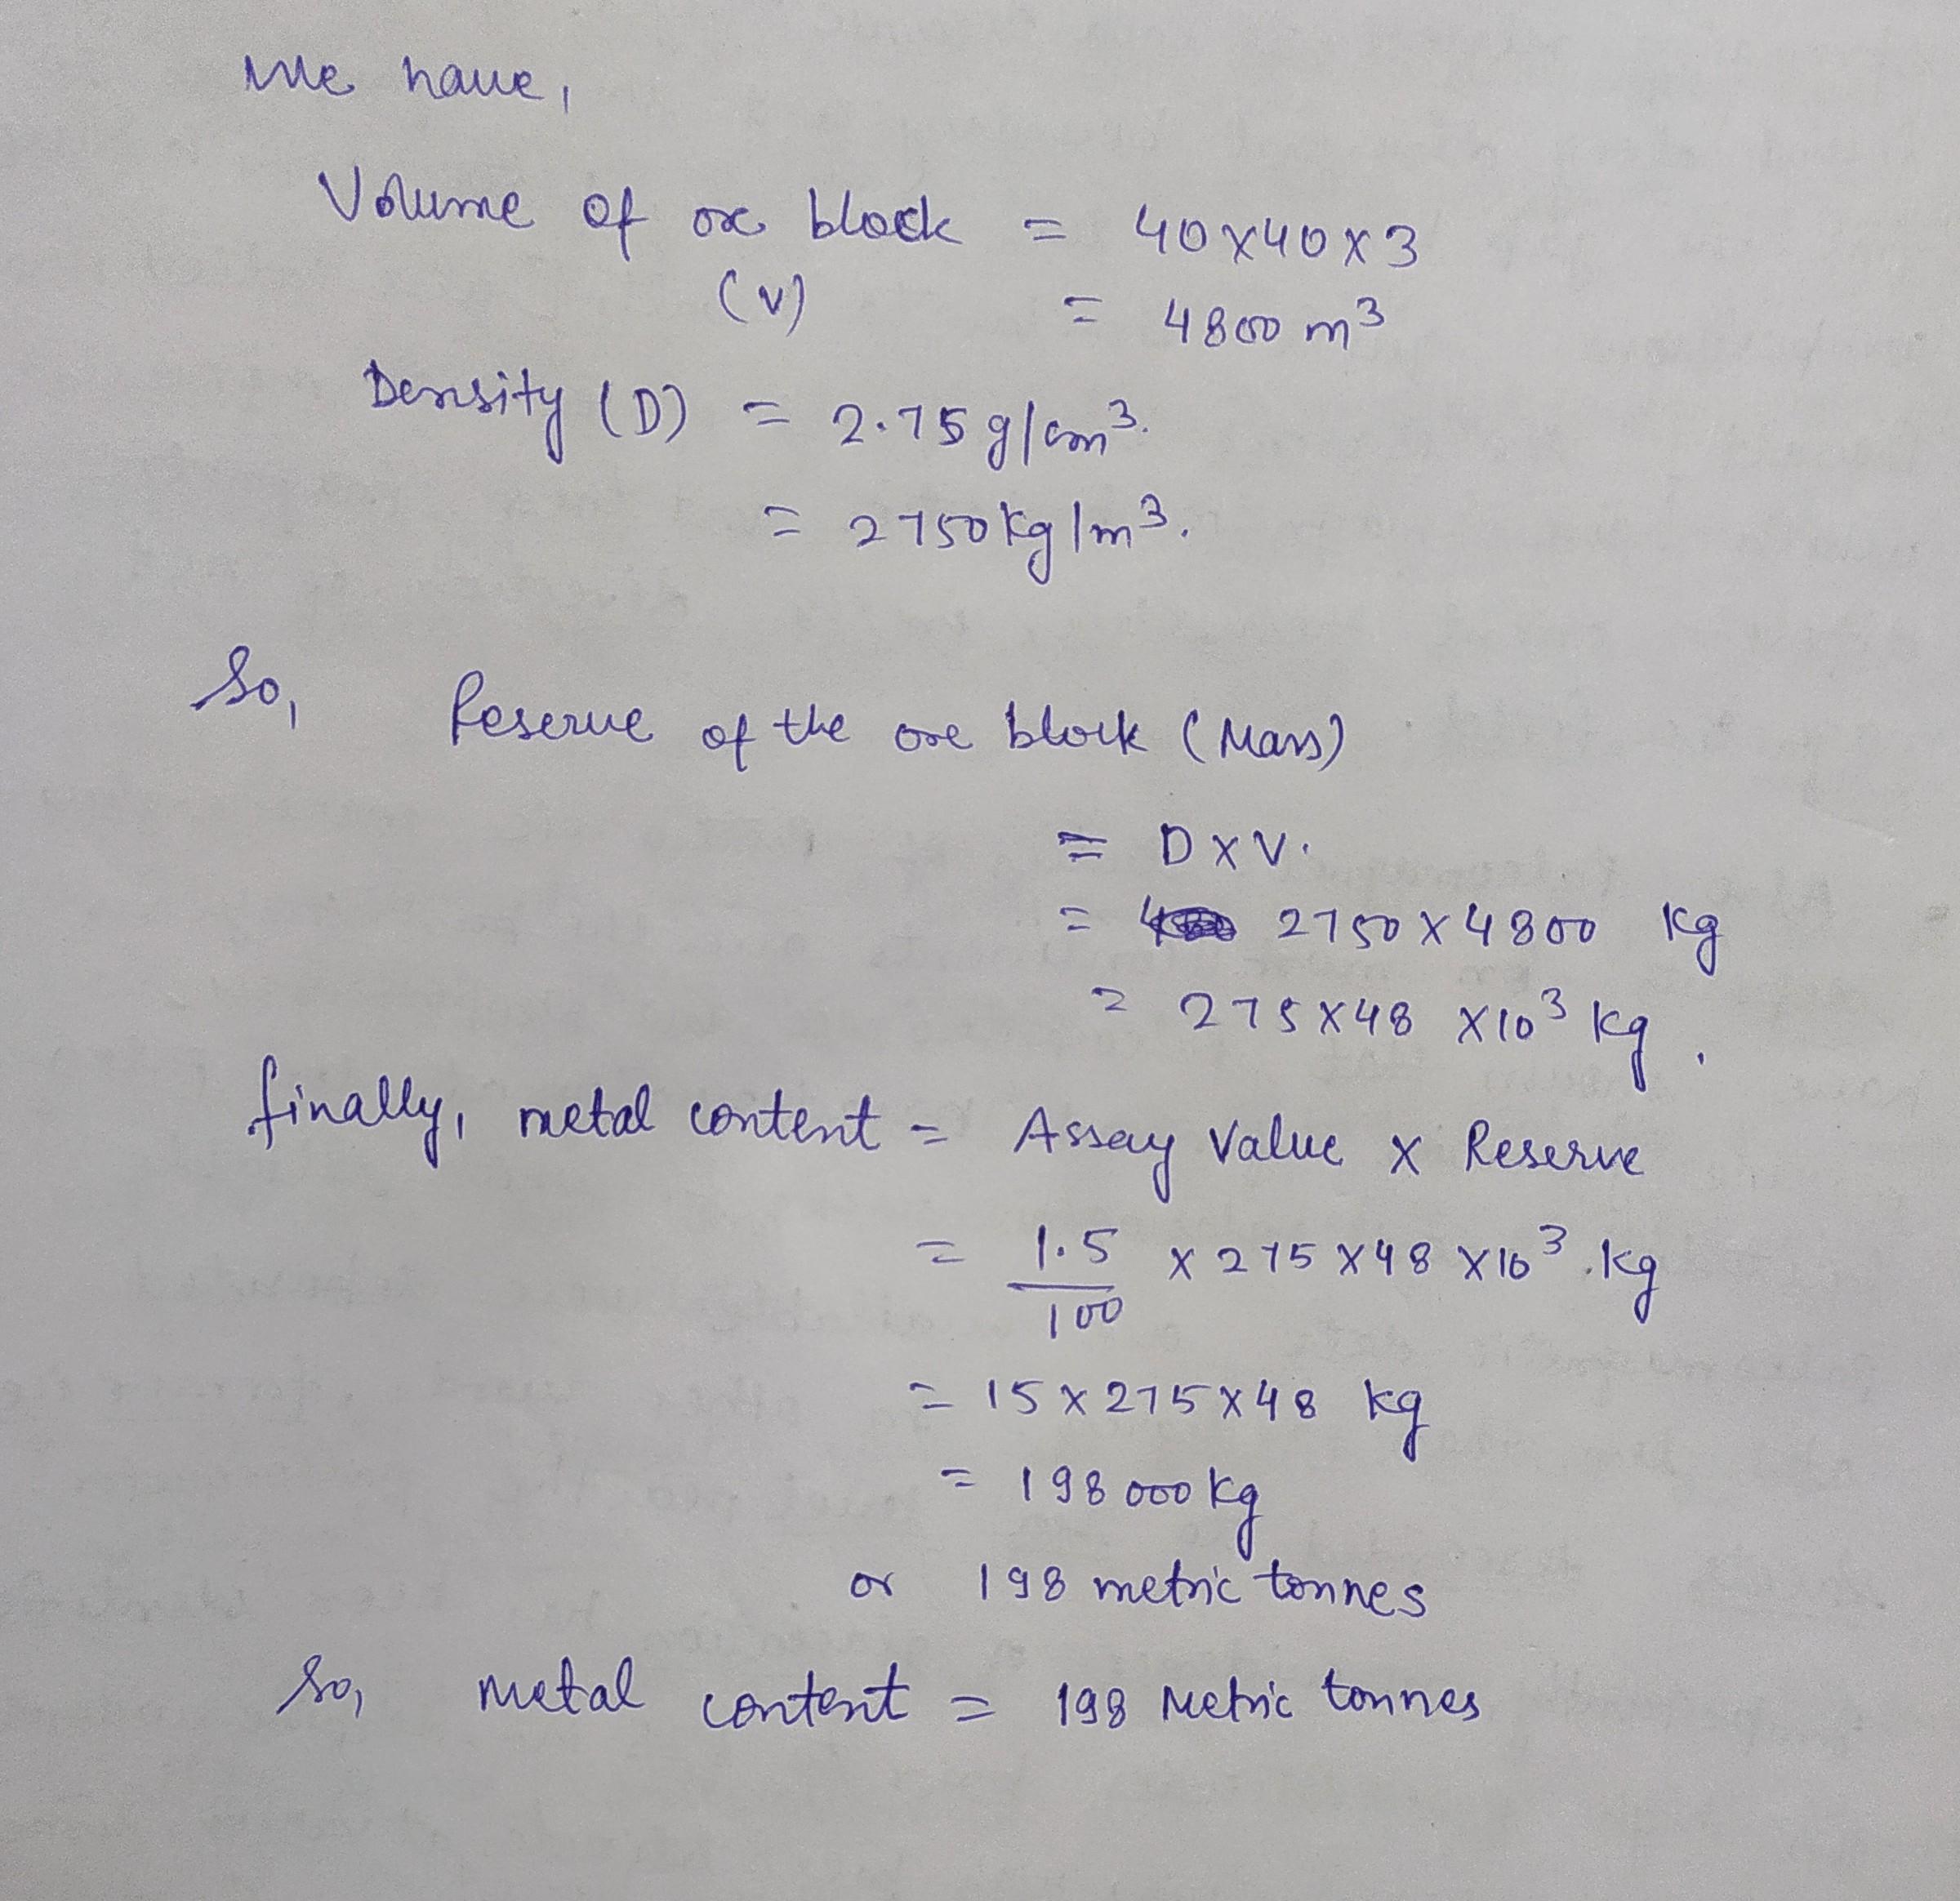 We have,
Volume of ore block = 40x40x3
(V) = 4800 m³
Density (D) = 2.75 g/cm³.
= 2750 kg/m³.
So, Reserve of the ore block (Mass)
= D x V.
= 2750 x 4800 kg
= 275 x 48 x10³ kg.
finally, metal content = Assay Value x Reserve
= 1.5/100 x 275 x 48 x 10³ kg
= 15 x 275 x 48 kg
= 198000 kg
or 198 metric tonnes
So, metal content = 198 Metric tonnes